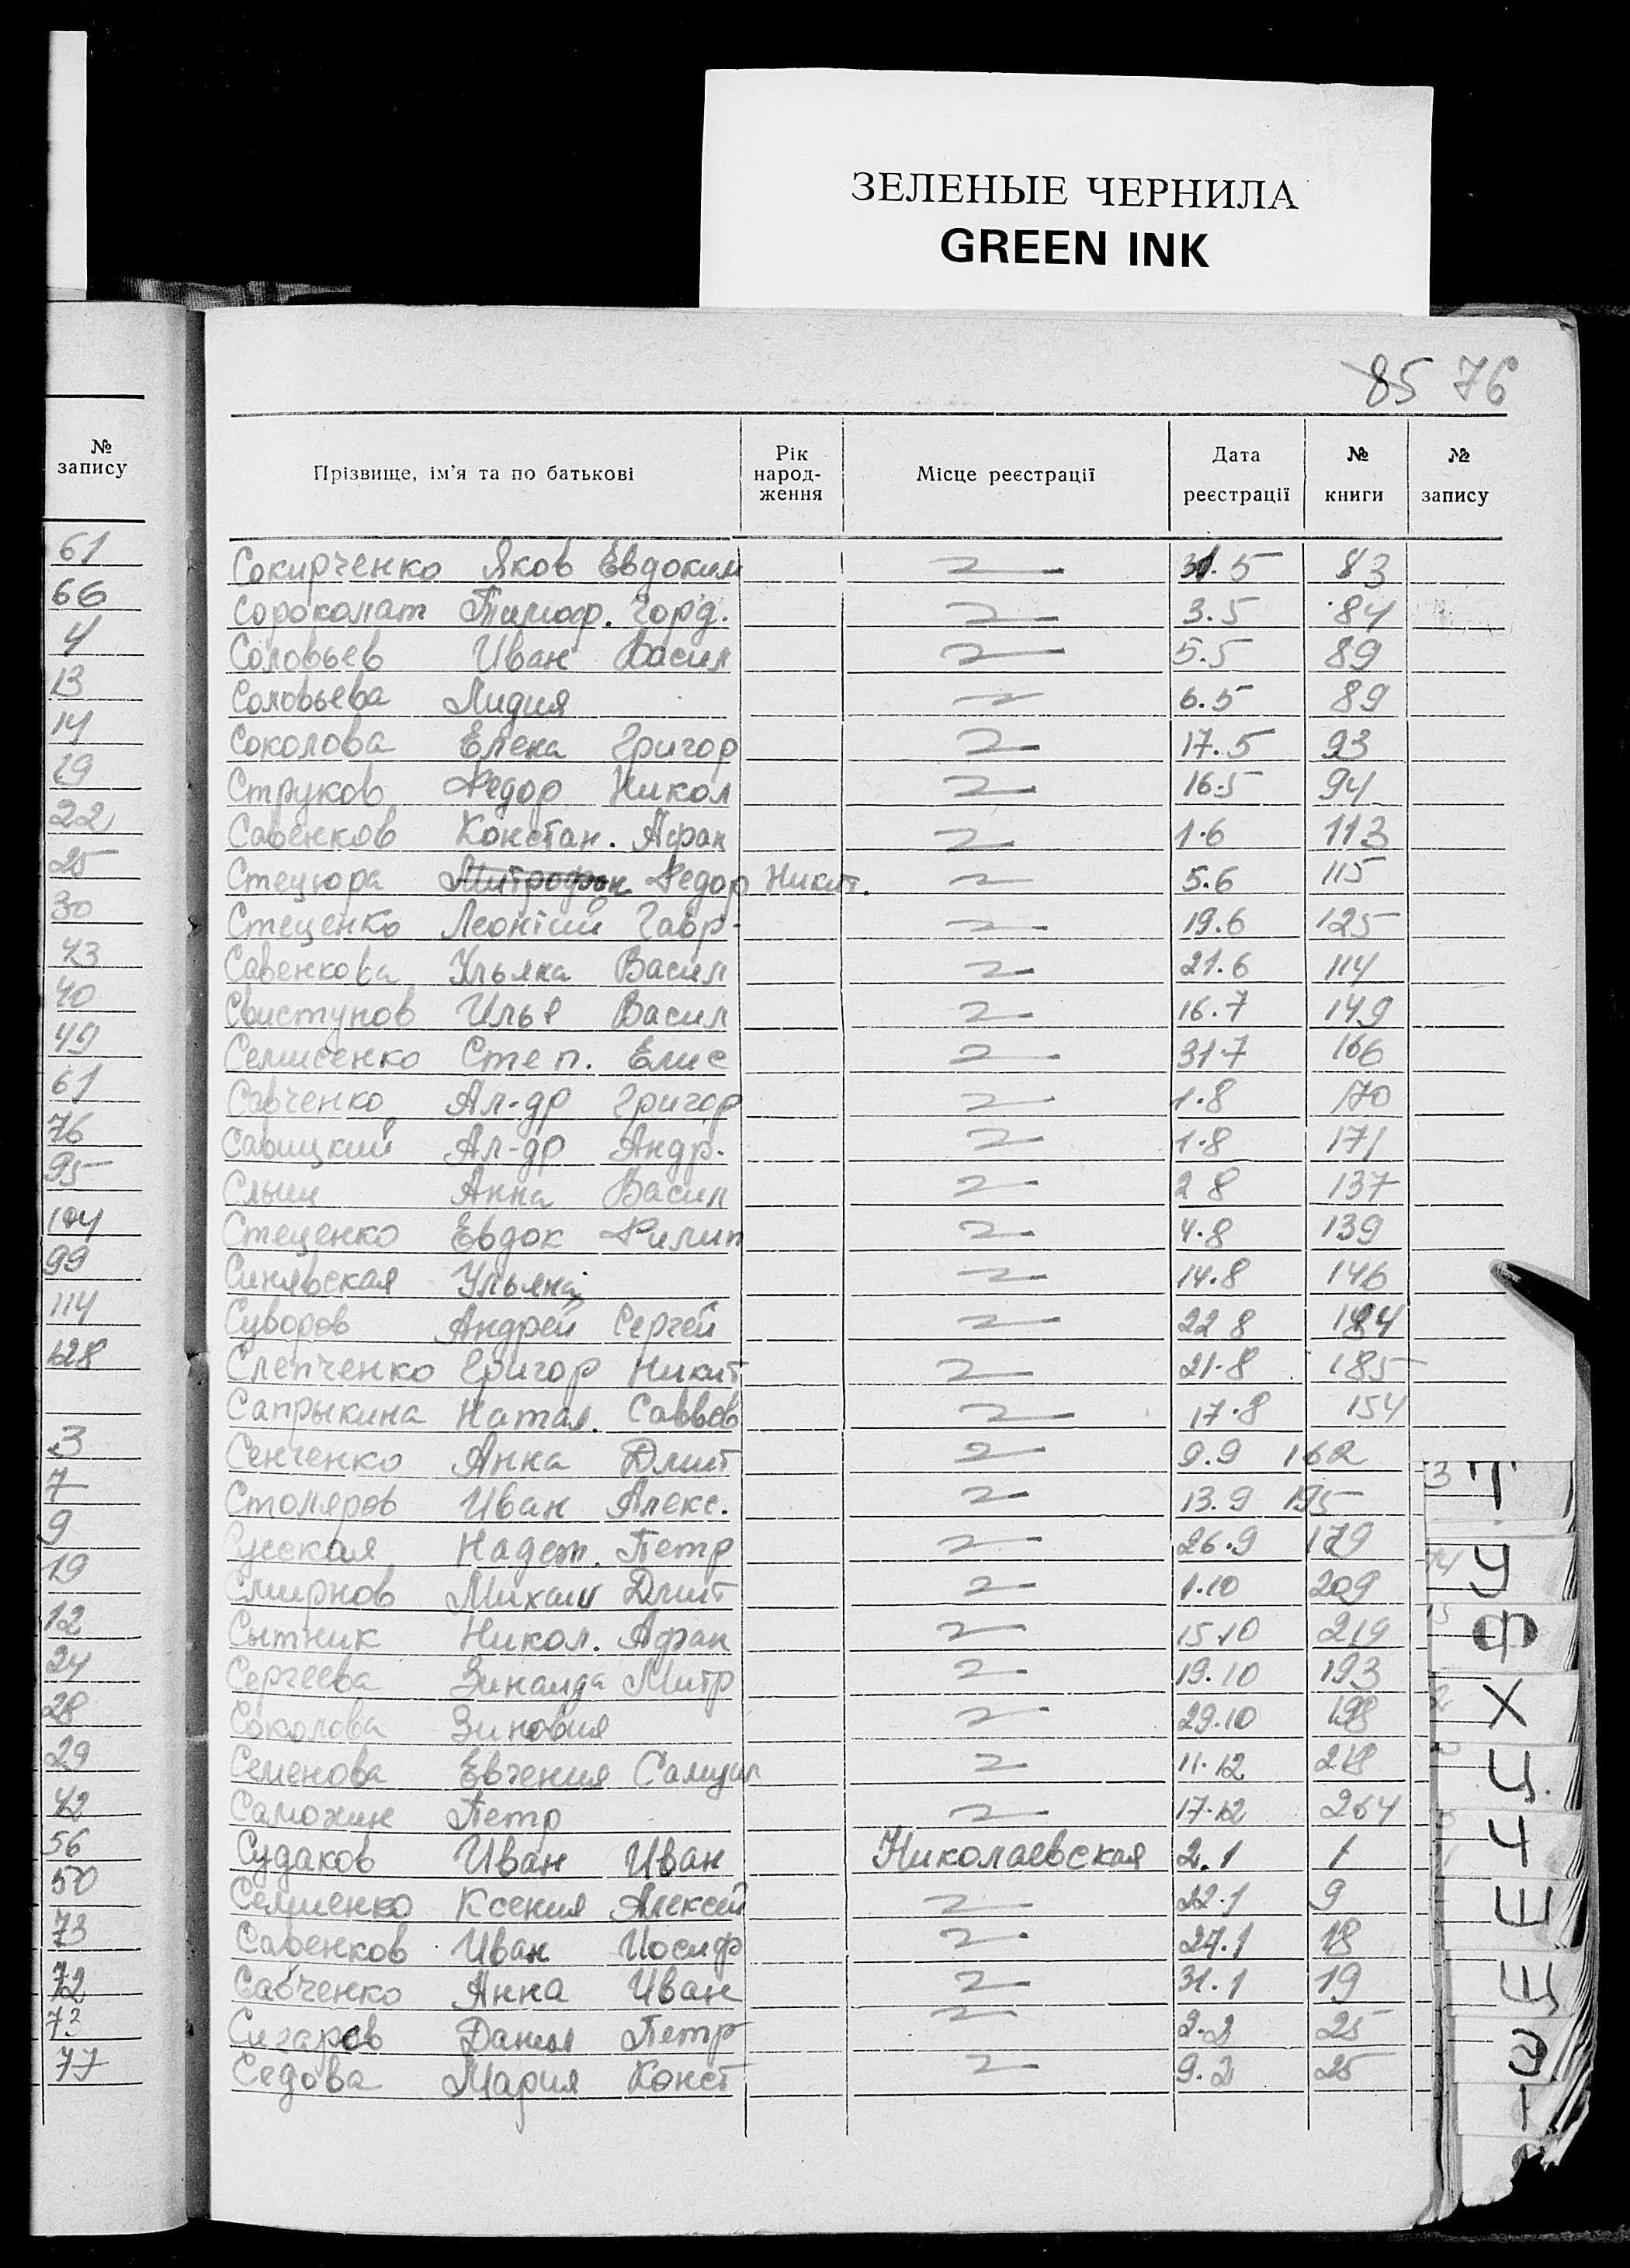 ЗЕЛЕНЫЕ ЧЕРНИЛА
GREEN INK
85 76
№ запису
61
66
4
13
14
19
22
25
30
43
40
49
61
76
95
104
99
114
128
3
7
9
19
12
24
28
29
42
56
50
73
72
73
77
Прізвище, ім'я та по батькові Рік народ-ження Місце реєстрації Дата реєстрації № книги № запису
Сокирченко Яков Евдоким 31.5 83
Сороколат Тимоф. Горд. 3.5 84
Соловьев Иван Васил 5.5 89
Соловьева Лидия 6.5 89
Соколова Елена Григор 17.5 93
Струков Федор Никол 16.5 94
Савенков Констан. Афан 1.6 113
Стецюра Митрофан Федор Никит. 5.6 115
Стеценко Леонтий Гавр. 19.6 125
Савенкова Ульяна Васил 21.6 114
Свистунов Илья Васил 16.7 149
Семисенко Степ. Елис 31.7 166
Савченко Ал-др Григор 1.8 170
Савицкий Ал-др Андр. 1.8 171
Слыш Анна Васил 2 8 137
Стеценко Евдок Филип 4.8 139
Синявская Ульяна 14.8 146
Суворов Андрей Сергей 22 8 184
Слепченко Григор Никит 21.8 185
Сапрыкина Натал. Саввев 17.8 154
Сенченко Анна Дмит 9.9 162
Столяров Иван Алекс. 13.9 195
Сусская Надеж. Петр 26.9 179
Смирнов Михаил Дмит 1.10 209
Сытник Никол. Афан 15.10 219
Сергеева Зинаида Митр 19.10 193
Соколова Зиновия 29.10 198
Семенова Евгения Самуил 11.12 218
Самохин Петр 17.12 264
Судаков Иван Иван Николаевская 2.1 1
Семиенко Ксения Алексей 22.1 9
Савенков Иван Иосиф 27.1 18
Савченко Анна Иван 31.1 19
Сигарев Данил Петр 2.2 25
Седова Мария Конст 9.2 25
Т
У
Ф
Х
Ц
Ч
Ш
Щ
Э